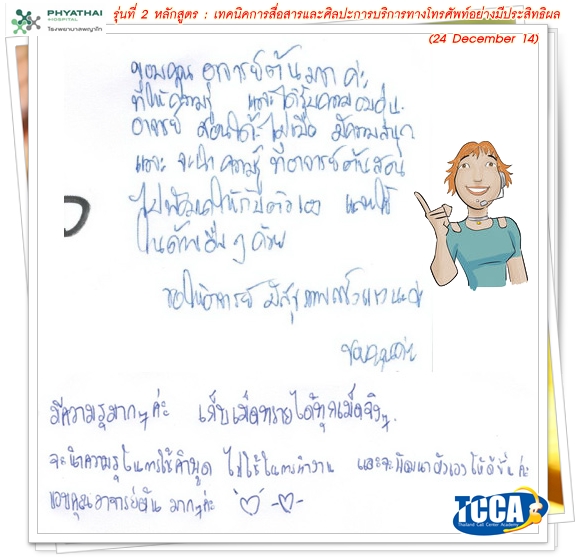 PHYATHAI
HOSPITAL
โรงพยาบาลพญาไท
รุ่นที่ 2 หลักสูตร : เทคนิคการสื่อสารและศิลปะการบริการทางโทรศัพท์อย่างมีประสิทธิผล
(24 December 14)
ขอบคุณ อาจารย์ต้นมาก ค่ะ
ที่ให้ความรู้ และได้รับความอบอุ่น
อาจารย์ สอนได้ ไม่เบื่อ มีความสนุก
และ จะนำ ความรู้ ที่อาจารย์ต้นสอน
ไปพัฒนาให้กับตัวเอง และใช้
ในด้านอื่น ๆ ด้วย
ขอให้อาจารย์ มีสุขภาพแข็งแรงนะค่ะ
ขอบคุณค่ะ
มีความสุขมากๆ ค่ะ เก็บเม็ดทรายได้ทุกเม็ดจริงๆ
จะนำความรู้ในการใช้คำพูด ไปใช้ในการทำงาน และจะพัฒนาตัวเองให้ดีขึ้น ค่ะ
ขอบคุณอาจารย์ต้น มากๆค่ะ
TCCA
Thailand Call Center Academy